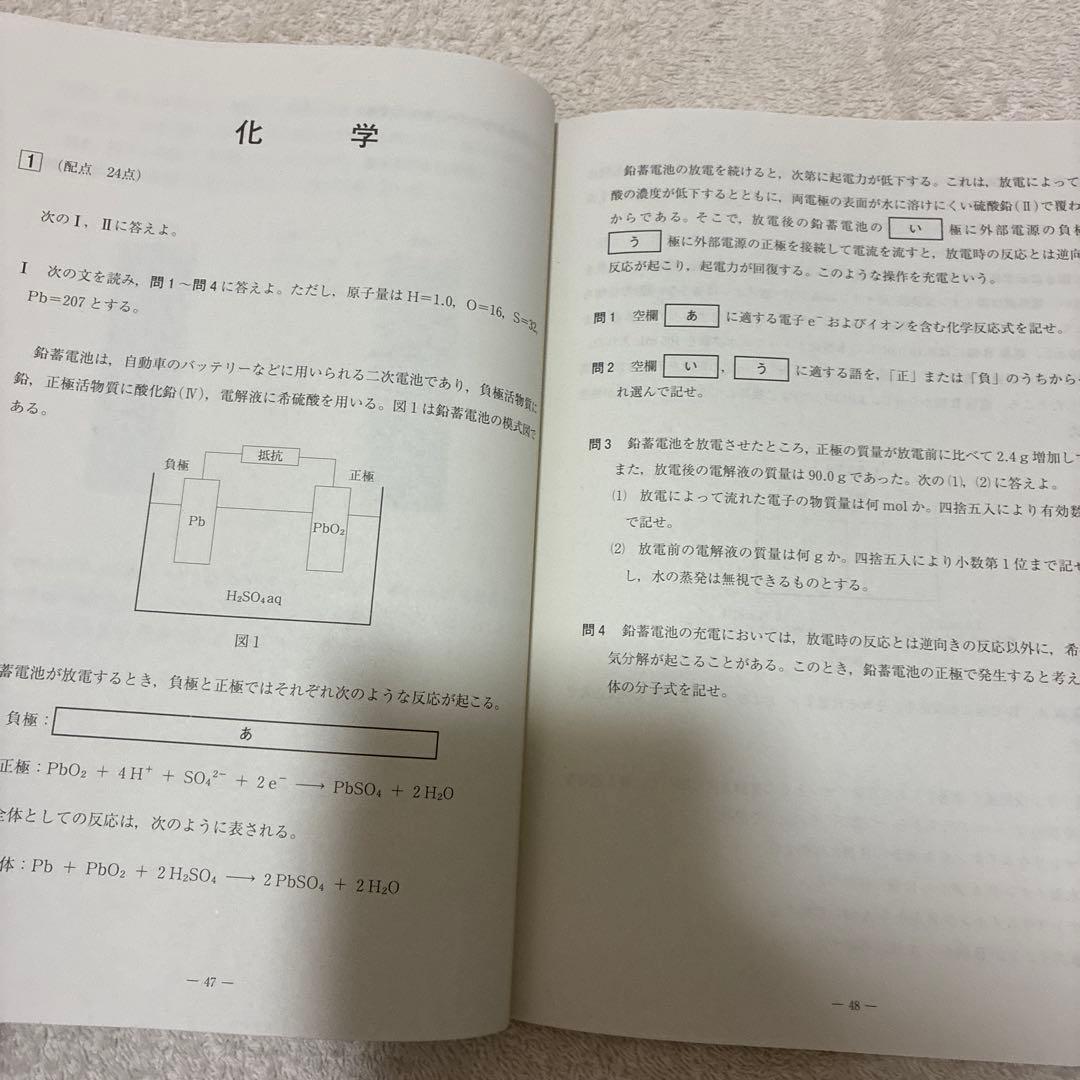 化 学
1 (配点 24点)
次のⅠ,Ⅱに答えよ。
Ⅰ 次の文を読み,問1〜問4に答えよ。ただし,原子量はH=1.0,O=16,S=32,
Pb=207とする。
鉛蓄電池は,自動車のバッテリーなどに用いられる二次電池であり,負極活物質に
鉛,正極活物質に酸化鉛(Ⅳ),電解液に希硫酸を用いる。図1は鉛蓄電池の模式図で
ある。
抵抗
負極
正極
Pb
PbO₂
H₂SO₄aq
図1
蓄電池が放電するとき,負極と正極ではそれぞれ次のような反応が起こる。
負極:あ
正極:PbO₂ + 4H⁺ + SO₄²⁻ + 2e⁻ ⟶ PbSO₄ + 2H₂O
全体としての反応は,次のように表される。
体:Pb + PbO₂ + 2H₂SO₄ ⟶ 2PbSO₄ + 2H₂O
― 47 ―
鉛蓄電池の放電を続けると,次第に起電力が低下する。これは,放電によって
酸の濃度が低下するとともに,両電極の表面が水に溶けにくい硫酸鉛(Ⅱ)で覆わ
からである。そこで,放電後の鉛蓄電池の い 極に外部電源の負極
う 極に外部電源の正極を接続して電流を流すと,放電時の反応とは逆向
反応が起こり,起電力が回復する。このような操作を充電という。
問1 空欄 あ に適する電子e⁻およびイオンを含む化学反応式を記せ。
問2 空欄 い , う に適する語を,「正」または「負」のうちから
れ選んで記せ。
問3 鉛蓄電池を放電させたところ,正極の質量が放電前に比べて2.4g増加して
また,放電後の電解液の質量は90.0gであった。次の(1),(2)に答えよ。
(1) 放電によって流れた電子の物質量は何molか。四捨五入により有効数
で記せ。
(2) 放電前の電解液の質量は何gか。四捨五入により小数第1位まで記せ
し,水の蒸発は無視できるものとする。
問4 鉛蓄電池の充電においては,放電時の反応とは逆向きの反応以外に,希
気分解が起こることがある。このとき,鉛蓄電池の正極で発生すると考え
体の分子式を記せ。
― 48 ―